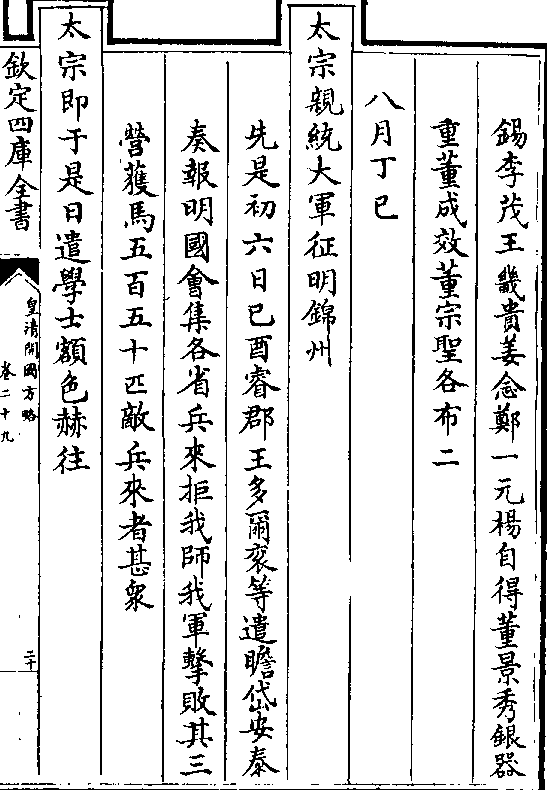 錫李茂王幾貴姜念鄭一元楊自得董景秀銀器
重董成效董宗聖各布二
八月丁巳
太宗親統大軍征明錦州
先是初六日己酉睿郡王多爾袞等遣瞻岱安泰
奏報明國會集各省兵來拒我師我軍擊敗其三
營獲馬五百五十匹敵兵來者甚衆
太宗即于是日遣學士額色赫往
欽定四庫全書
皇清開國方略
卷二十九
二十